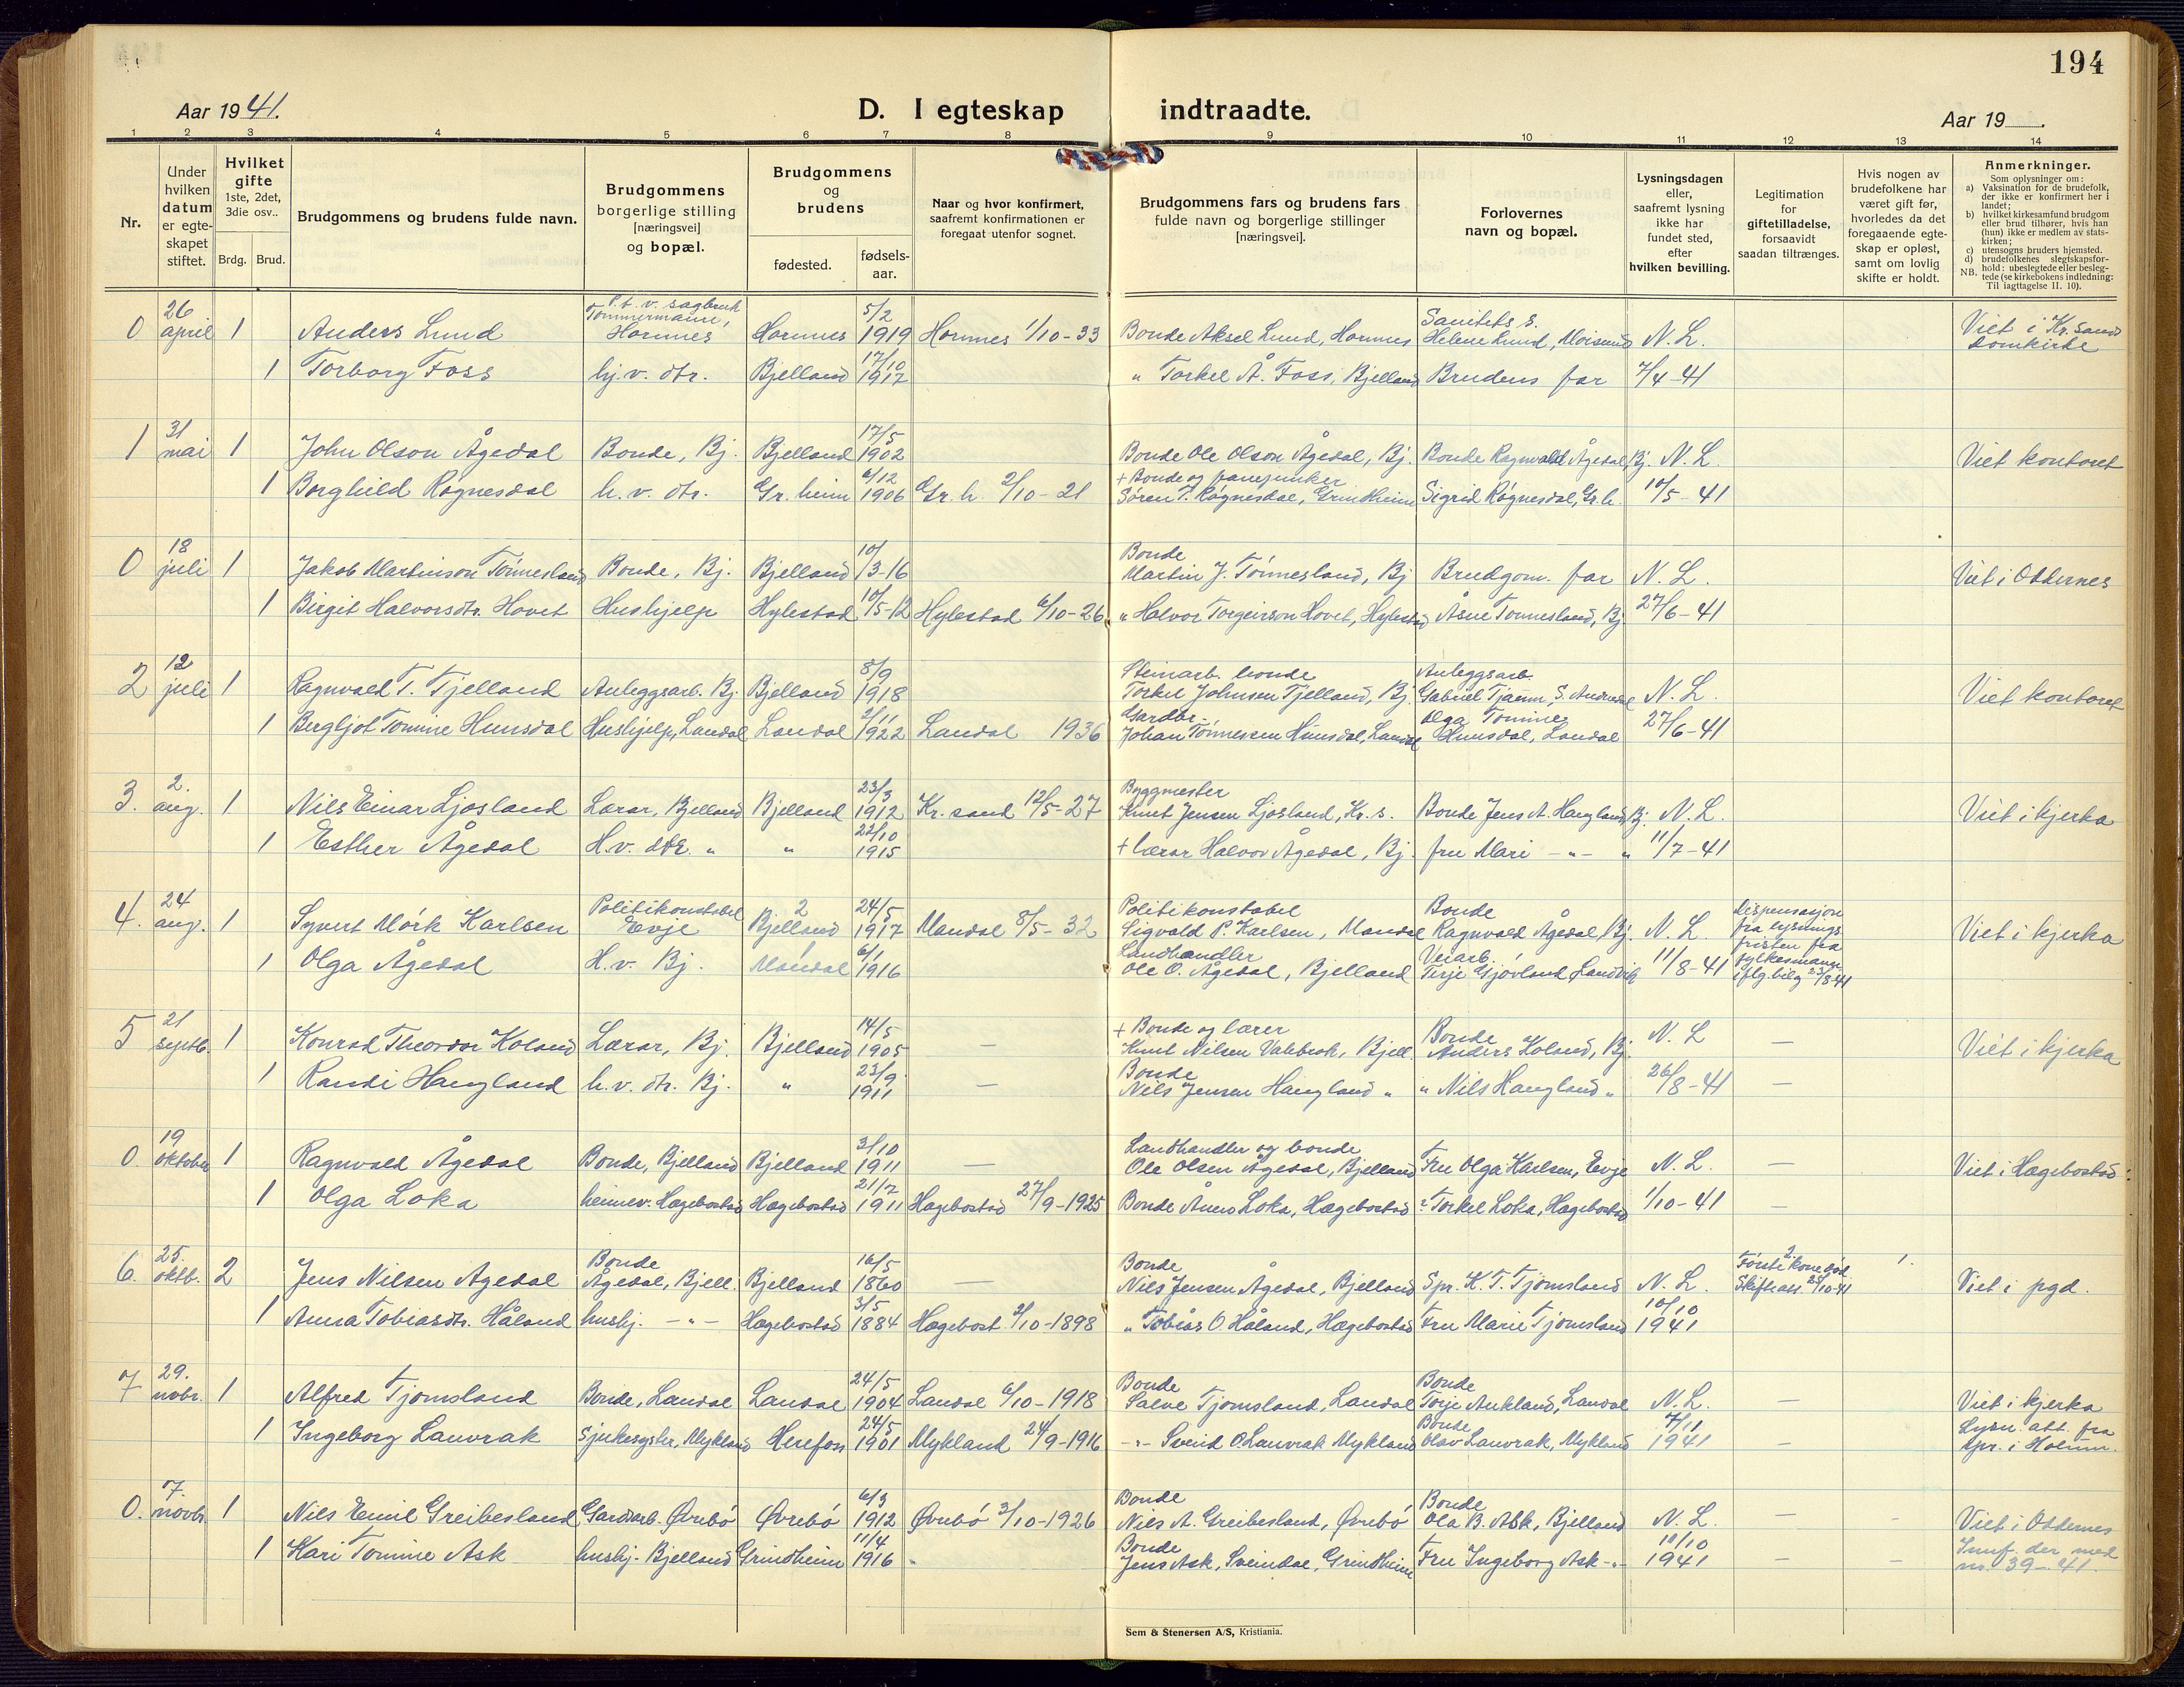 194
Aar 1941.
D. I egteskap indtraadte.
Aar 19
1 2 3 4 5 6 7 8 9 10 11 12 13 14
Nr.
Under hvilken datum er egteskapet stiftet.
Hvilket gifte 1ste, 2det, 3die osv..
Brdg. Brud.
Brudgommens og brudens fulde navn.
Brudgommens borgerlige stilling [næringsvei] og bopæl.
Brudgommens og brudens
fødested. fødselsaar.
Naar og hvor konfirmert, saafremt konfirmationen er foregaat utenfor sognet.
Brudgommens fars og brudens fars fulde navn og borgerlige stillinger [næringsvei].
Forlovernes navn og bopæl.
Lysningsdagen eller, saafremt lysning ikke har fundet sted, efter hvilken bevilling.
Legitimation for giftetilladelse, forsaavidt saadan tiltrænges.
Hvis nogen av brudefolkene har været gift før, hvorledes da det foregaaende egteskap er opløst, samt om lovlig skifte er holdt.
Anmerkninger.
Som oplysninger om:
a) Vaksination for de brudefolk, der ikke er konfirmert her i landet;
b) hvilket kirkesamfund brudgom eller brud tilhører, hvis han (hun) ikke er medlem av statskirken;
c) utensogns bruders hjemsted.
d) brudefolkenes slegtskapsforhold: ubeslegtede eller beslegtede (se kirkebokens indledning:
NB. Til iagttagelse II. 10).
0 26 april 1 Anders Lund P.t. v. sagbruk Tømmermann, Hornnes Hornnes 5/2 1919 Hornnes 1/10-33 Bonde Aksel Lund, Hornnes Sanitets s. Helene Lund, Moisund N. L. Viet i Kr.sand domkirke
1 Torborg Foss hj. v. dtr. Bjelland 17/10 1917 " Torkel Å. Foss, Bjelland Brudens far 7/4-41
1 31 mai 1 John Olson Ågedal Bonde, Bj. Bjelland 17/5 1902 Bonde Ole Olson Ågedal, Bj. Bonde Ragnvald Ågedal, Bj. N. L. Viet kontoret
1 Borghild Røgnesdal h. v. dtr. Gr.heim 6/12 1906 Gr. h. 2/10-21 + Bonde og fanejunker Søren T. Røgnesdal, Grindheim Sigrid Røgnesdal, Gr.h. 10/5-41
0 18 juli 1 Jakob Martinson Tønnesland Bonde, Bj. Bjelland 10/3-16 Bonde Martin J. Tønnesland, Bj Brudgom. far N. L. Viet i Oddernes
1 Birgit Halvorsdtr. Hovet Hushjelp Hylestad 10/5-12 Hylestad 6/10-26 " Halvor Torgeirson Hovet, Hylestad Åsne Tønnesland, Bj 27/6-41
2 12 juli 1 Ragnvald T. Tjelland Anleggsarb. Bj. Bjelland 8/9 1918 Steinarb. bonde Torkel Johnsen Tjelland, Bj. Anleggsarb. Gabriel Tjamm, S. Audnedal N. L. Viet kontoret
1 Bergljot Tomine Hunsdal Hushjelp, Laudal Laudal 2/11 1922 Laudal 1936 Gardbr. Johan Tønnessen Hunsdal, Laudal Olga Tomine Hunsdal, Laudal 27/6-41
3. 2. aug. 1 Nils Einar Ljosland Lærar, Bjelland Bjelland 23/3 1912 Kr. sand 12/5-27 Byggmester Knut Jensen Ljosland, Kr. s. Bonde Jens A. Haugland, Bj. N. L. Viet i kjerka
1 Esther Ågedal H. v. dtr. " " 22/10 1915 + lærar Halvor Ågedal, Bj. fru Mari -"- " 11/7-41
4. 24 aug. 1 Syvert Mørk Karlsen Politikonstabel Evje 2 Bjelland 24/5 1917 Mandal 8/5-32 Politikonstabel Sigvald P. Karlsen, Mandal Bonde Ragnvald Ågedal, Bj. N. L. Dispensasjon fra lysnings fristen fra fylkesmann iflg. bilg 23/8-41 Viet i kjerka
1 Olga Ågedal H. v. Bj. 1 Mandal 6/1 1916 Landhandler Ole O. Ågedal, Bjelland Veiarb. Terje Gjøvland, Landvik 11/8-41
5 21 septb. 1 Konrad Theodor Koland Lærar, Bj. Bjelland 14/5 1905 — + Bonde og lærer Knut Nilsen Valebrok, Bjell. Bonde Anders Koland, Bj. N. L — Viet i kjerka
1 Randi Haugland h. v. dtr. Bj. " 23/9 1911 — Bonde Nils Jensen Haugland " " Nils Haugland " 26/8-41 —
0. 19 oktober 1 Ragnvald Ågedal Bonde, Bjelland Bjelland 3/10 1911 — Landhandler og bonde Ole Olsen Ågedal, Bjelland Fru Olga Karlsen, Evje N. L. — Viet i Hægebostad.
1 Olga Loka heimev. Hægebostad Hægebostad 21/7 1911 Hægebostad 27/9-1925 Bonde Ånen Loka, Hægebostad " Torkel Loka, Hægebostad 1/10-41 —
6. 25. oktb. 2 Jens Nilsen Ågedal Bonde Ågedal, Bjell. Bjelland 16/5 1860 — Bonde Nils Jensen Ågedal, Bjelland Spr. K. T. Tjomsland N. L. 2. Første kone død Skifteatt. 23/10-41 1. Viet i pgd.
1 Anna Tobiasdtr. Håland hushj. -"- Hægebostad 3/5 1884 Hægebost. 2/10-1898 " Tobias O. Håland, Hægebostad Fru Marie Tjomsland 10/10 1941
7 29. nobr. 1 Alfred Tjomsland Bonde, Laudal Laudal 24/5 1904 Laudal 6/10-1918 Bonde Salve Tjomsland, Laudal Bonde Terje Aukland, Laudal N. L. — Viet i kjerka
1 Ingeborg Lauvrak Sjukesyster, Mykland Herefoss 24/5 1901 Mykland 24/9-1916 -"- Sveind O. Lauvrak Mykland Bonde Olav Lauvrak, Mykland 7/11 1941 — Lysn. att. fra spr. i Holum.
0. 7. novbr 1 Nils Emil Greibesland Gardsarb. Øvrebø Øvrebø 6/3 1912 Øvrebø 3/10-1926 Bonde Nils A. Greibesland, Øvrebø Bonde Ola B. Ask, Bjelland N. L. — - Viet i Oddernes
1 Kari Tomine Ask hushj. Bjelland Grindheim 11/4 1916 " Bonde Jens Ask, Sveindal, Grindheim Fru Ingeborg Ask -"- 18/10 1941 — — Innf. der med nr. 39-41.
Sem & Stenersen A/S, Kristiania.